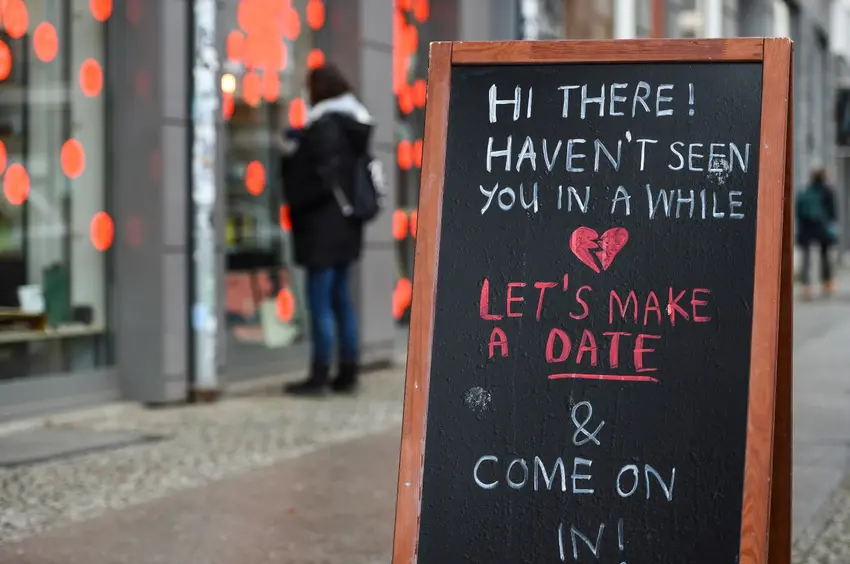 HI THERE!
HAVEN'T SEEN
YOU IN A WHILE
LET'S MAKE
A DATE
&
COME ON
IN!